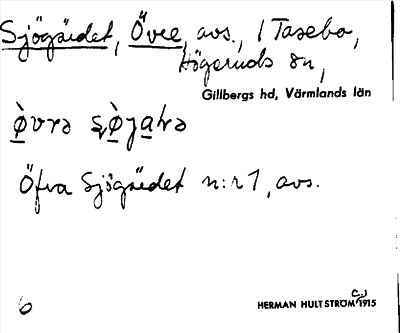 Sjögärdet, Övre, avs., / Tasebo,
Högeruds sn,
Gillbergs hd, Värmlands län
Öfra Sjögärdet n:r 1, avs.
6
HERMAN HULTSTRÖM 1915